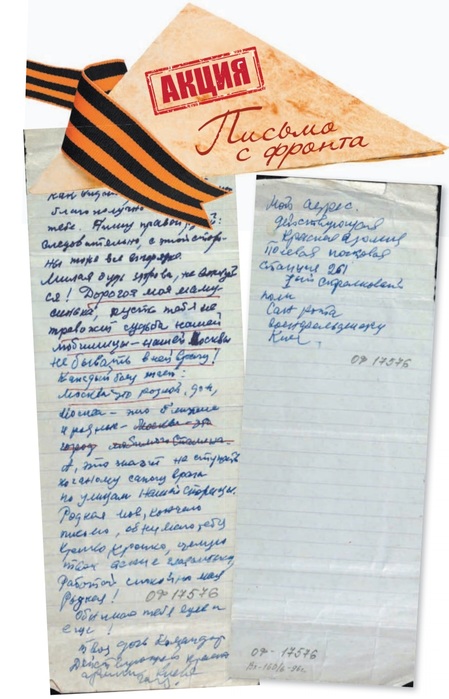 АКЦИЯ
Письмо
с фронта
благополучно
тебе. Пишу правой,
следовательно, с этой сторо-
ны тоже все в порядке
Милая будь здорова, не волнуй
ся! Дорогая моя маму-
синька, пусть тебя не
тревожит судьба нашей
любимицы - нашей Москвы
Не бывать в ней врагу!
Каждый боец знает:
Москва это родной, дом,
Москва - это близкие
и родные - Москва - это
город любимого Сталина
А, это значит не ступать
поганому сапогу врага
по улицам нашей столицы.
Родная моя, кончаю
письмо, обнимаю тебя
крепко крепко, целую
твои ясные глазоньки
Работай спокойно моя
Родная!
ОФ 17576
Обнимаю тебя еще и
еще!
Твоя дочь Командир
Действующей Красной
армии
Мой адрес:
Действующая
Красная Армия
Полевая почтовая
станция 261
1 ый стрелковый
полк
Сан рота
военфельдшеру
ОФ 17576
ОФ - 17576